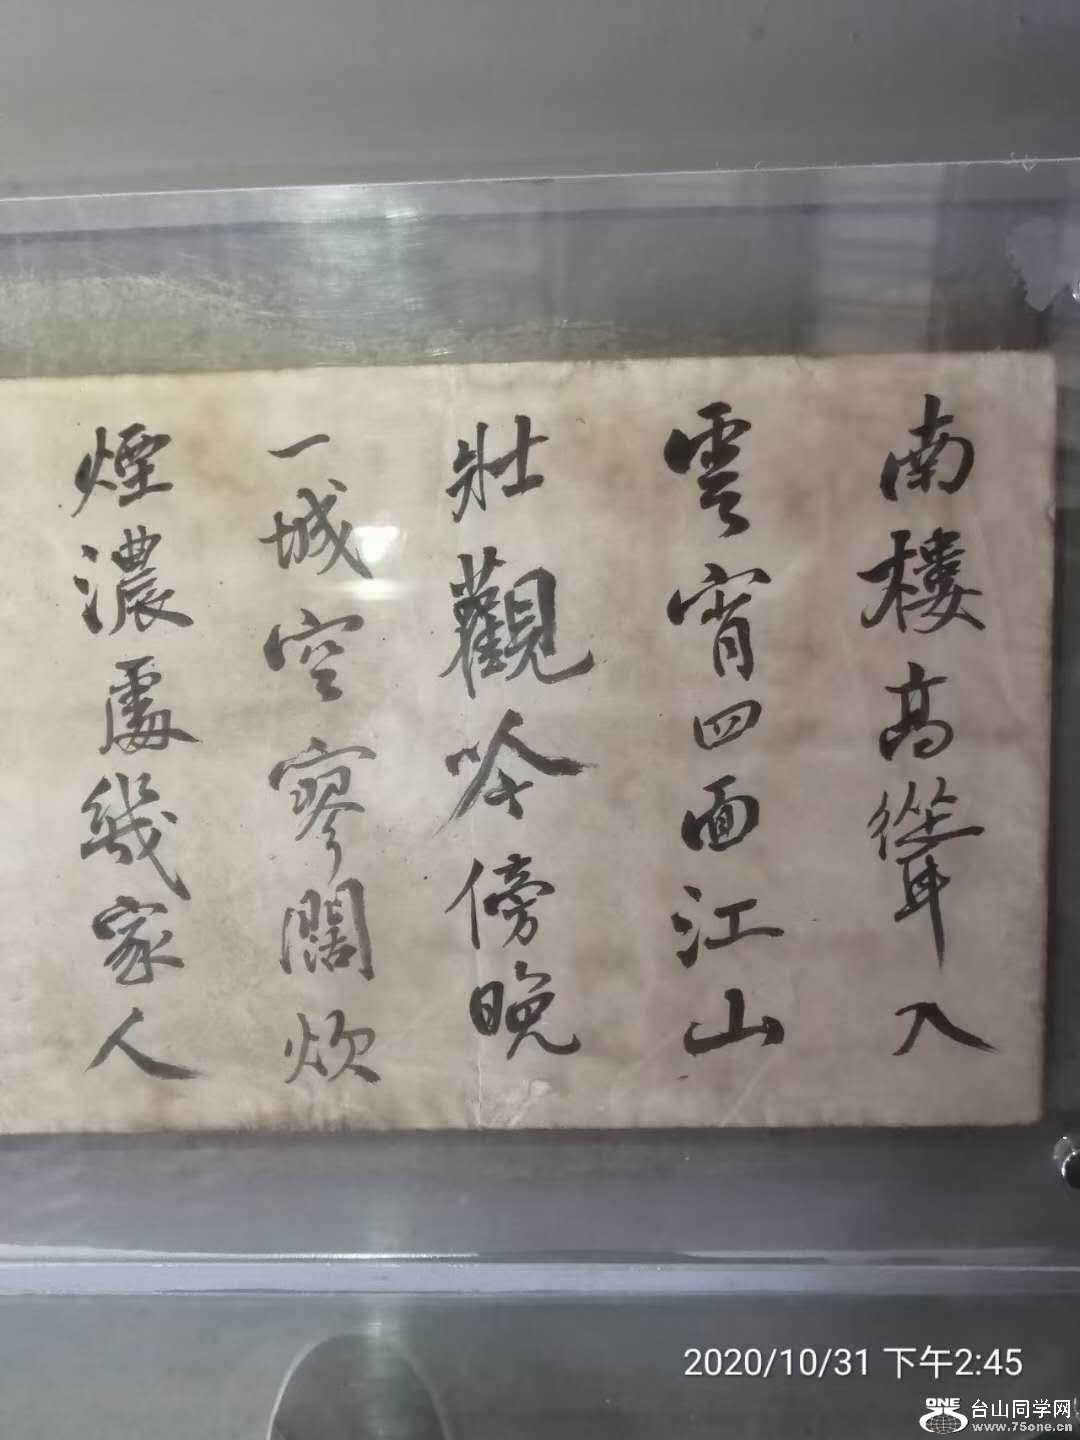 南樓高聳入
雲宵四面江山
壯觀吟傍晚
一城空寥闊炊
煙濃處幾家人
2020/10/31 下午2:45
ONE 台山同学网
www.75one.cn